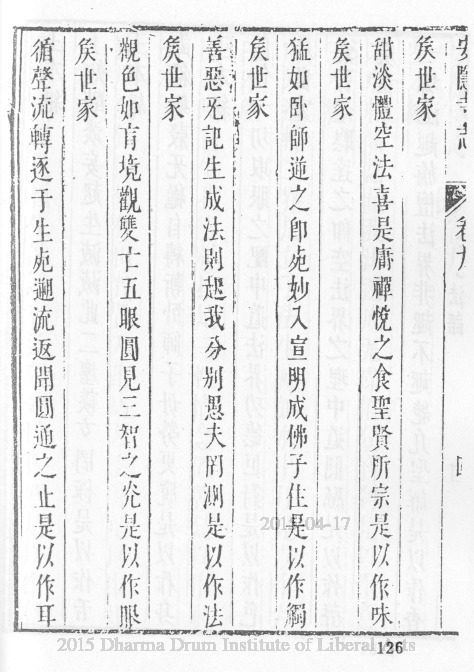 安隱寺志 卷九 四
矣世家
甜淡體空法喜是庸禪悅之食聖賢所宗是以作味
矣世家
猛如卧師遊之即宛妙入宣明成佛子住是以作觸
矣世家
善惡无記生成法則趕我分别愚夫罔測是以作法
矣世家
觀色如盲境觀雙亡五眼圓見三智之光是以作眼
矣世家
循聲流轉逐于生死遡流返聞圓通之止是以作耳
2015-04-17
126
2015 Dharma Drum Institute of Liberal Arts